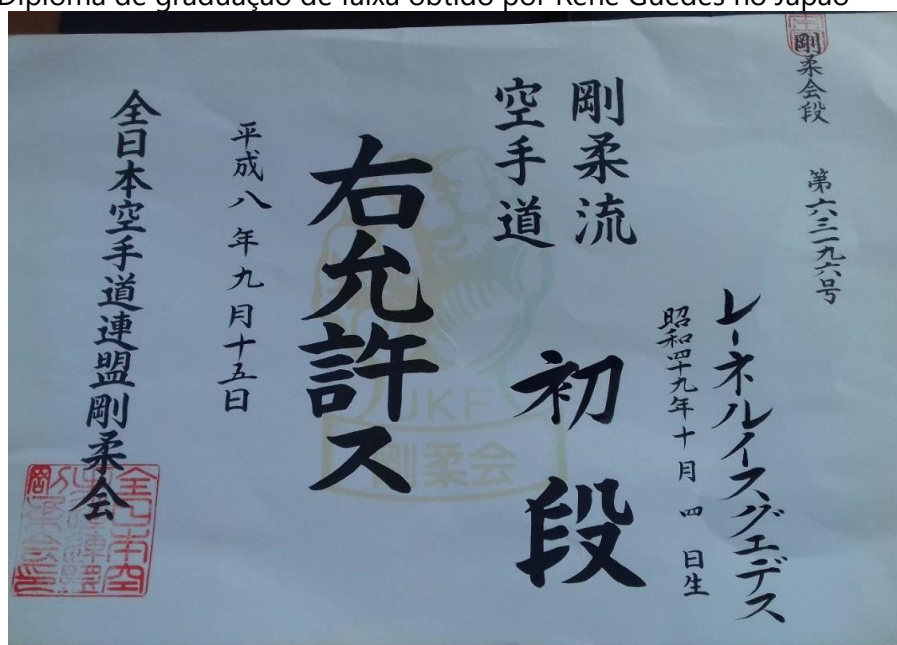 Diploma de graduação de faixa obtido por Renê Guedes no Japão
剛柔会段　第六三一九六号
レーネルイスグエデス
昭和四十九年十月四日生
剛柔流
空手道　初段
右允許ス
平成八年九月十五日
全日本空手道連盟剛柔会
JKF
剛柔会